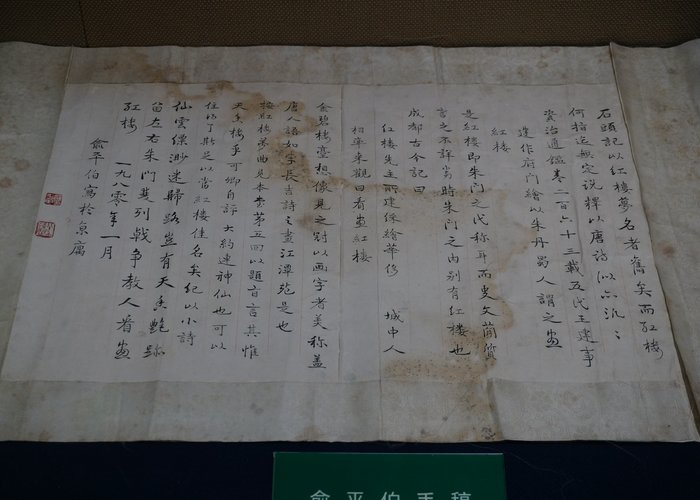 石頭記以紅樓夢名者舊矣而紅樓
何指迄無定說釋以唐詩似亦泛〻
資治通鑑卷二百六十三載五代王建事
建作府門繪以朱丹蜀人謂之畫
紅樓
是紅樓即朱門之代稱耳而史文簡質
言之不詳當時朱門之內別有紅樓也
成都古今記曰
紅樓先主所建綵繪華侈 城中人
相率來觀曰看畫紅樓
金碧樓臺想像見之別以画字者美称蓋
唐人語如李長吉詩之畫江潭苑是也
按紅樓夢曲見本書第五回以題旨言其惟
天香樓乎可卿自評大約連神仙也可以
住的了斯足以當紅樓佳名矣紀以小詩
仙雲縹渺迷歸路豈有天香艷跡
留左右朱門雙列戟爭教人看畫
紅樓 一九八〇年一月
俞平伯寫於京寓
俞平伯手稿